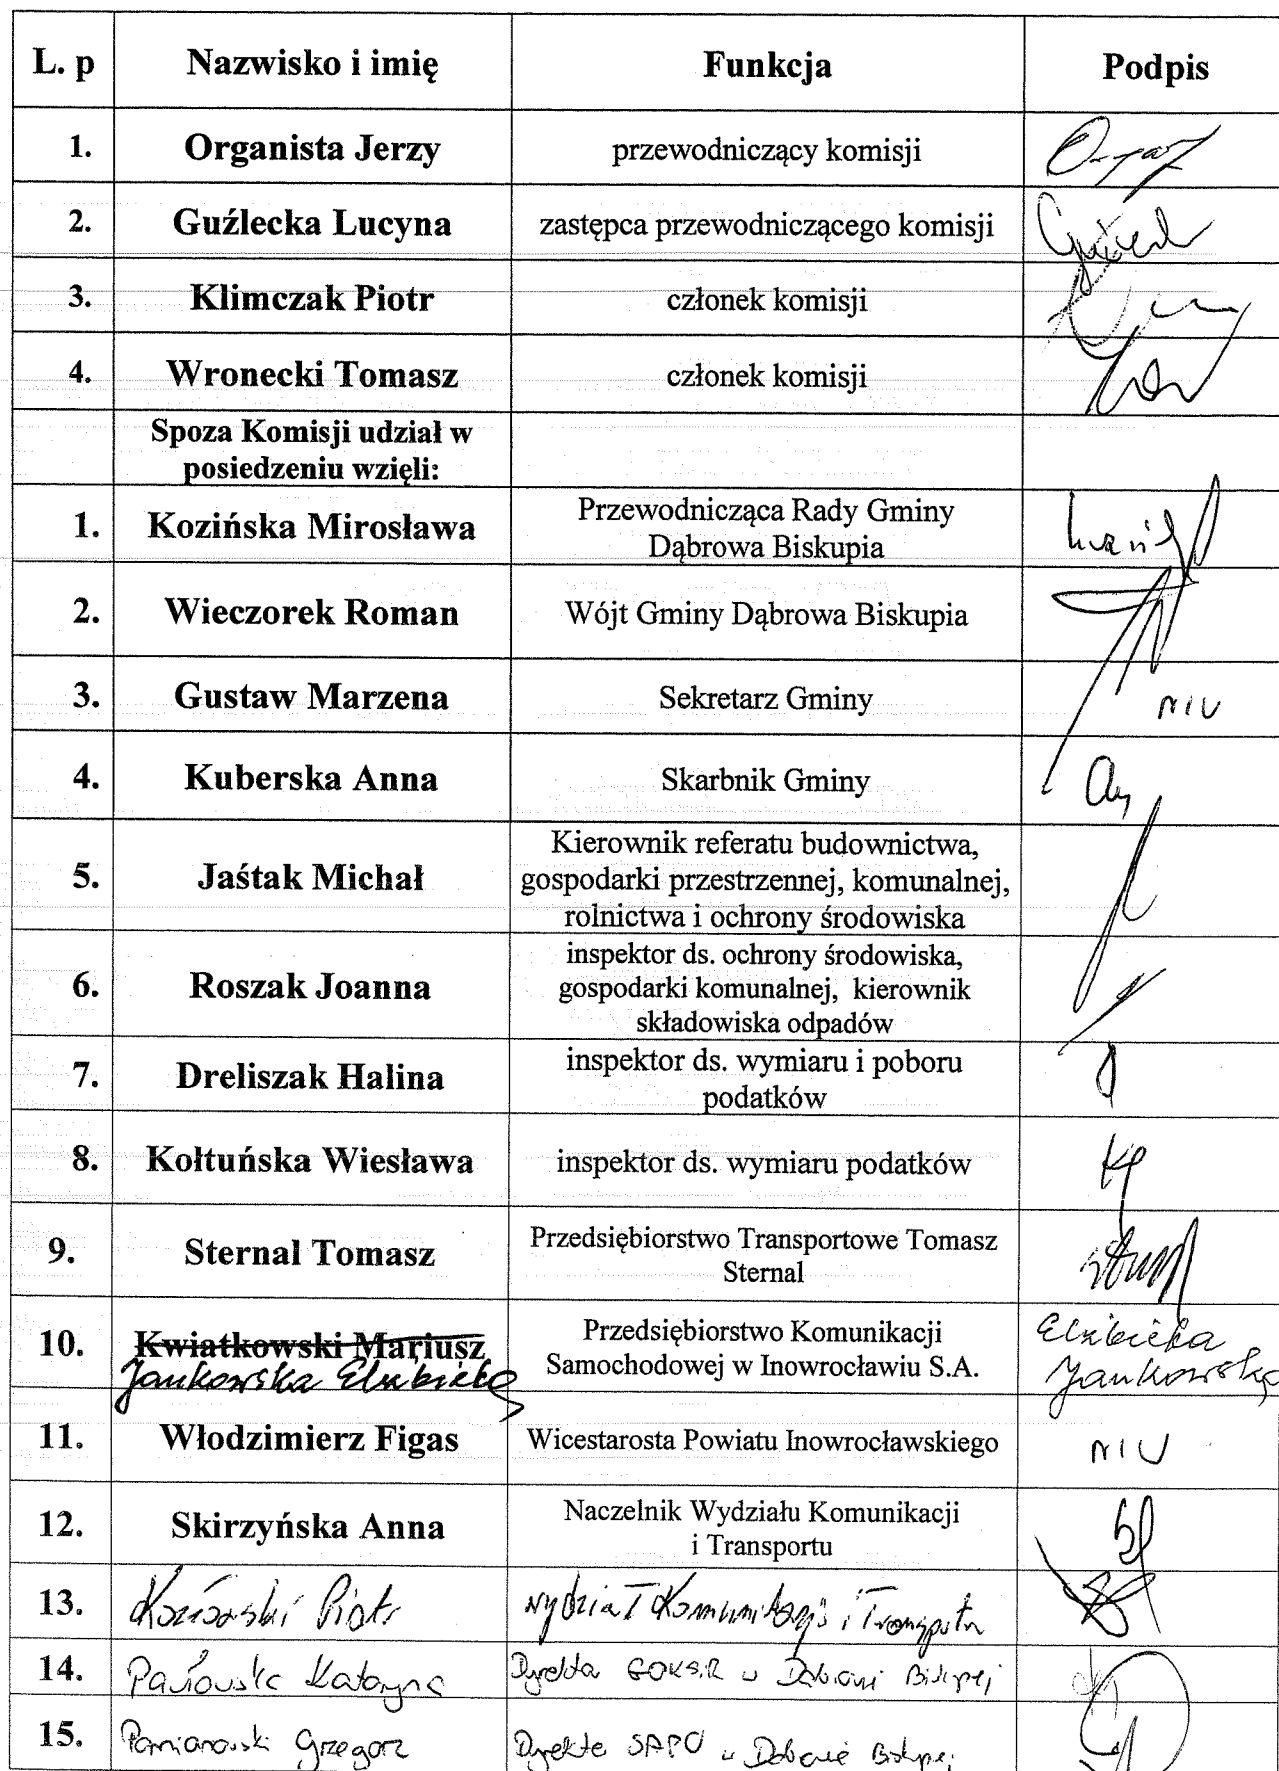 L. p Nazwisko i imię Funkcja Podpis
1. Organista Jerzy przewodniczący komisji
2. Guźlecka Lucyna zastępca przewodniczącego komisji
3. Klimczak Piotr członek komisji
4. Wronecki Tomasz członek komisji
Spoza Komisji udział w
posiedzeniu wzięli:
1. Kozińska Mirosława Przewodnicząca Rady Gminy
Dąbrowa Biskupia
2. Wieczorek Roman Wójt Gminy Dąbrowa Biskupia
3. Gustaw Marzena Sekretarz Gminy
4. Kuberska Anna Skarbnik Gminy
5. Jaśtak Michał Kierownik referatu budownictwa,
gospodarki przestrzennej, komunalnej,
rolnictwa i ochrony środowiska
6. Roszak Joanna inspektor ds. ochrony środowiska,
gospodarki komunalnej, kierownik
składowiska odpadów
7. Dreliszak Halina inspektor ds. wymiaru i poboru
podatków
8. Kołtuńska Wiesława inspektor ds. wymiaru podatków
9. Sternal Tomasz Przedsiębiorstwo Transportowe Tomasz
Sternal
10. Kwiatkowski Mariusz Przedsiębiorstwo Komunikacji Elżbieta
Jankowska Elżbieta Samochodowej w Inowrocławiu S.A. Jankowska
11. Włodzimierz Figas Wicestarosta Powiatu Inowrocławskiego
12. Skirzyńska Anna Naczelnik Wydziału Komunikacji
i Transportu
13. Piotr Wydział Komunikacji i Transportu
14. Pawłowska Katarzyna Dyrektor GOKSiR w Dąbrowie Biskupiej
15. Grzegorz Dyrektor SAPO w Dąbrowie Biskupiej